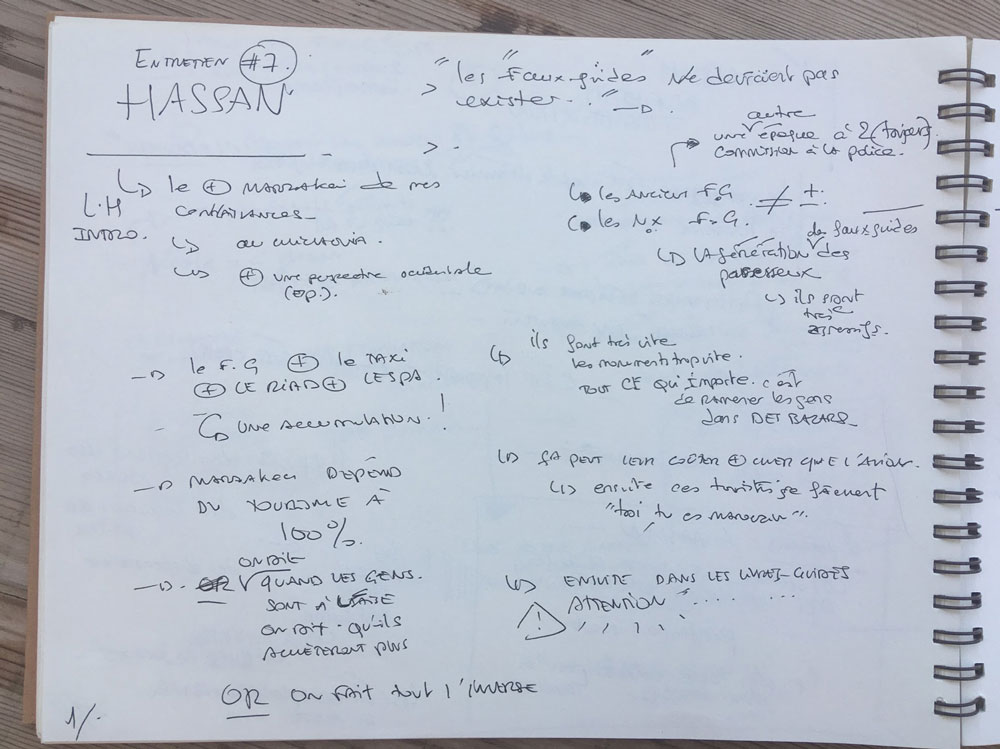 ENTRETIEN #7.
HASSAN
L.H
INTRO.
↳ le ⊕ MARRAKCHI de mes
connaissances_
↳ ou
↳ ⊕ une perspective occidentale
(op.).
→ le F.G ⊕ le TAXI
⊕ LE RIAD ⊕ LE SPA.
↳ UNE ACCUMULATION. !
→ MARRAKECH DÉPEND
DU TOURISME À
100%.
on sait
→ QUAND LES GENS.
SONT À L'AISE
on sait qu'ils
ACHÈTERONT PLUS
OR ON FAIT tout l'INVERSE
1/.
> "les "Faux-guides" Ne devraient pas
exister.." →
> .
autre
une époque à 2 (toujours).
Commission à la police.
↳ les ANCIENS F.G ≠ ±.
↳ les Nx F.G.
de faux guides
↳ LA génération des
paresseux
↳ ils sont
très
agressifs.
↳ ils font très vite
les monuments trop vite.
TOUT CE QUI IMPORTE. c'est
de RAMENER les gens
dans DES BAZARS_
↳ ÇA PEUT LEUR COÛTER ⊕ CHER QUE L'AVION.
↳ ensuite ces touristes se fâchent
"toi tu es marocain".
↳ ENSUITE DANS LES GUIDES
ATTENTION "..... ...